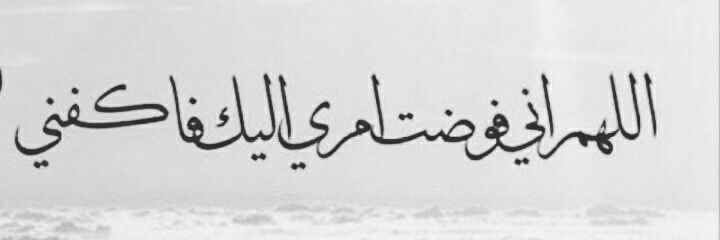 اللهم اني فوضت امري اليك فاكفني